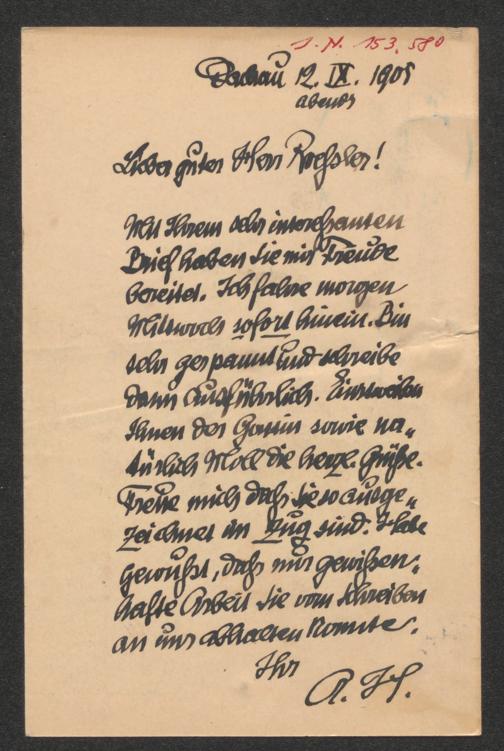 J. N. 153.580
Dachau 12. IX. 1905
abends
Lieber guter Herr Roeßler!
Mit Ihrem sehr interessanten
Brief haben Sie mir Freude
bereitet. Ich fahre morgen
Mittwoch sofort hinein. Bin
sehr gespannt und schreibe
dann ausführlich. Einstweilen
Ihnen der Gattin sowie na„
türlich Moll die herzl. Grüße.
Freue mich daß Sie so ausge„
zeichnet im Zug sind. Habe
gewußt, daß nur gewißen„
hafte Arbeit Sie vom Schreiben
an uns abhalten konnte.
Ihr
A. H.